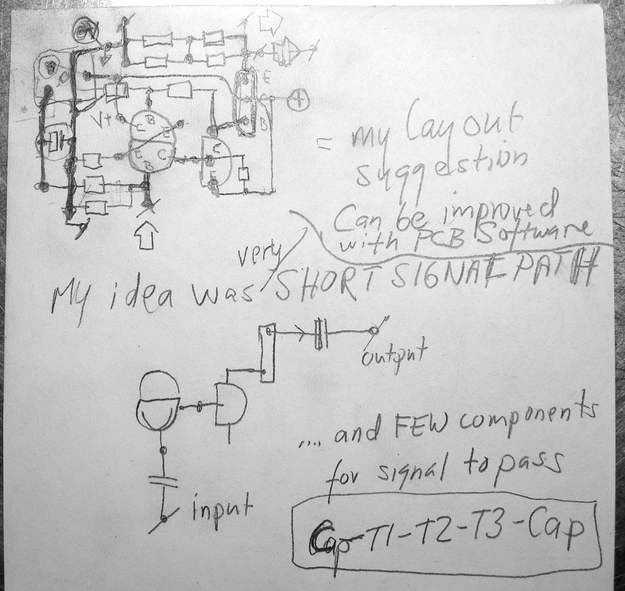 E
C
B
V+
C B E
E B C
C
E
= my layout
suggestion
Can be improved
with PCB Software
very
My idea was SHORT SIGNAL PATH
output
.... and FEW components
for signal to pass
input
Cap-T1-T2-T3-Cap